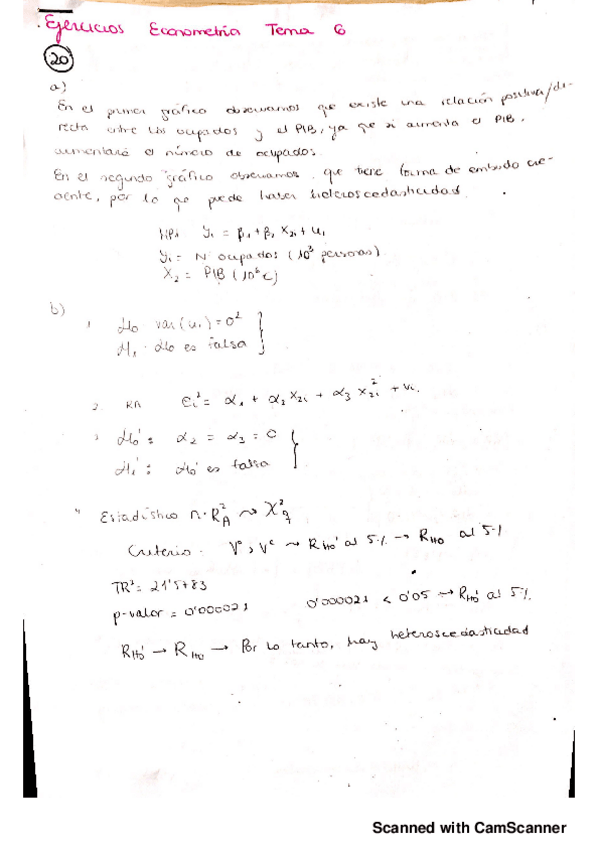 Ejercicios Econometría Tema 6
20
a)
En el primer gráfico observamos que existe una relación positiva/di-
recta entre los ocupados y el PIB, ya que si aumenta el PIB,
aumentará el número de ocupados.
En el segundo gráfico observamos que tiene forma de embudo cre-
ciente, por lo que puede haber heteroscedasticidad
Yi = β1 + β2 X2i + ui
Yi = Nº ocupados (10³ personas)
X2 = PIB (10⁶ €)
b)
1 Ho var(ui) = σ²
H1 Ho es falsa
2 RA ei² = α1 + α2 X2i + α3 X2i² + vi
3 Ho': α2 = α3 = 0
H1': Ho' es falsa
4 Estadístico n·R²A ~ X²q
Criterio: Vº > Vᶜ ~> RHo' al 5% → RHo al 5%
TR² = 21'5783
p-valor = 0'000021 0'000021 < 0'05 → RHo' al 5%
RHo' → RHo → Por lo tanto, hay heteroscedasticidad
Scanned with CamScanner